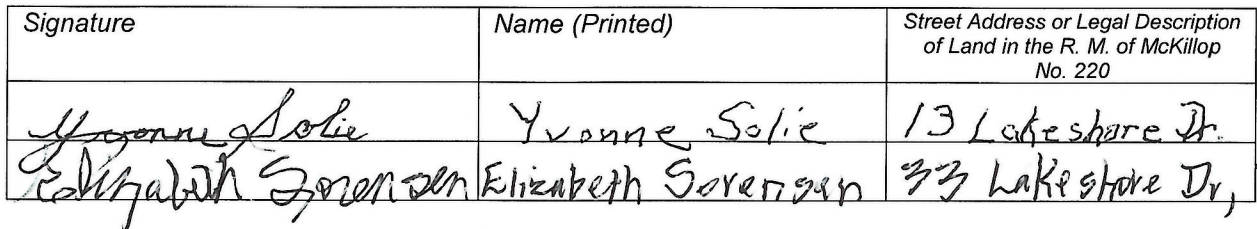 Signature Name (Printed) Street Address or Legal Description
of Land in the R. M. of McKillop
No. 220
Yvonne Solie Yvonne Solie 13 Lakeshore Dr.
Elizabeth Sorensen Elizabeth Sorensen 33 Lakeshore Dr,